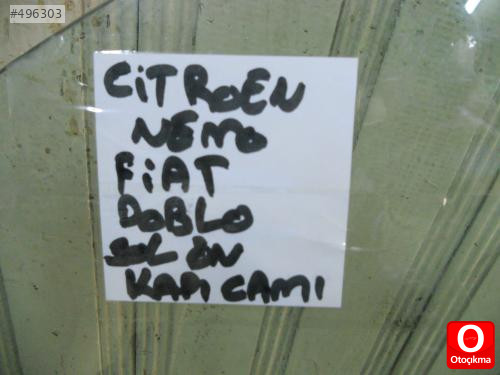 #496303
CiTROEN
NEMO
FiAT
DOBLO
SOL ÖN
KAPI CAMI
O
Otoçıkma